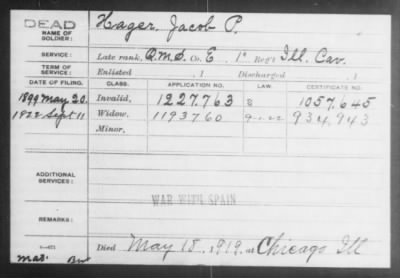 DEAD
NAME OF SOLDIER: Hager, Jacob P.
SERVICE: Late rank, Q.M.S. Co. E, 1" Reg't Ill. Cav.
TERM OF SERVICE: Enlisted , 1 Discharged , 1
DATE OF FILING. CLASS. APPLICATION NO. LAW. CERTIFICATE NO.
1899 May 20. Invalid, 1227.763 8 1057.645
1922 Sept 11 Widow, 1193760 9-1-22 934,943
Minor,
ADDITIONAL SERVICES:
WAR WITH SPAIN
REMARKS:
Died May 18, 1919, at Chicago Ill